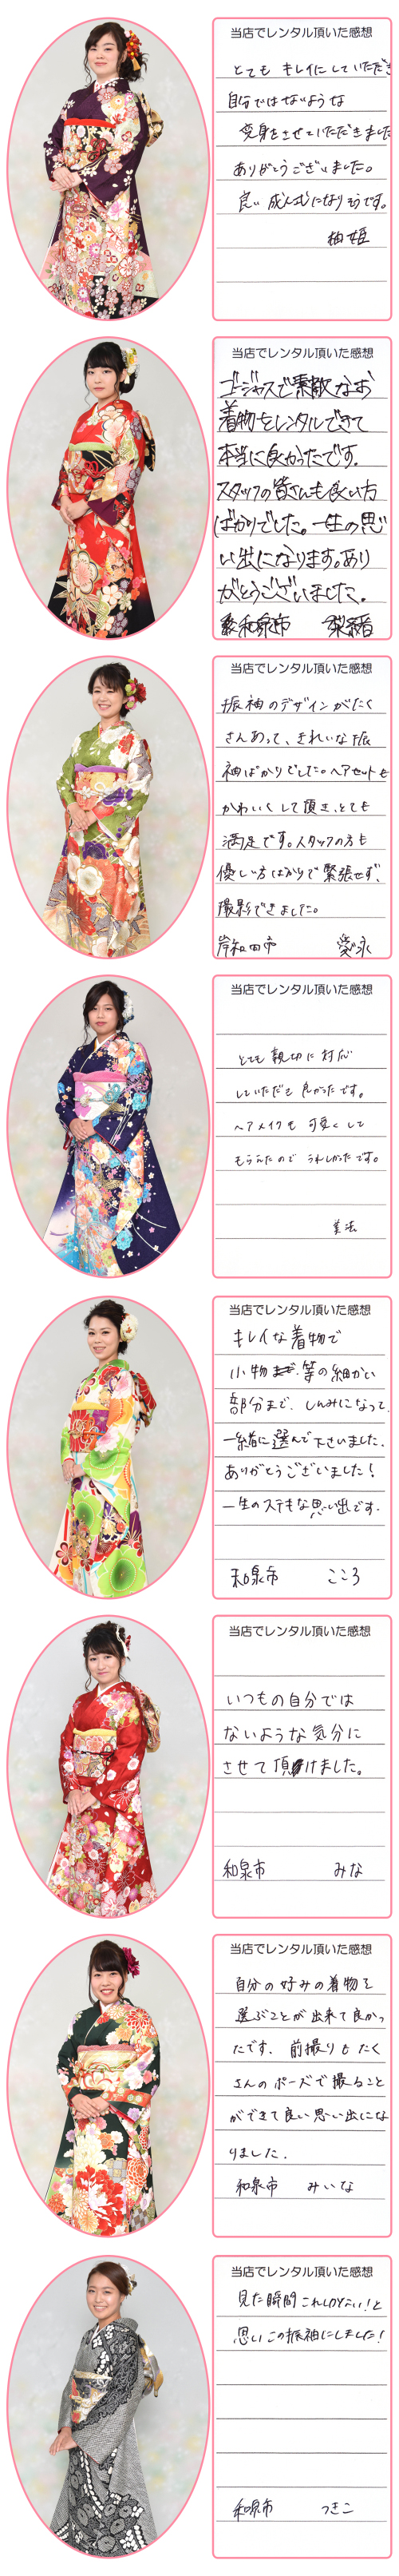 当店でレンタル頂いた感想
とても キレイにしていただき
自分ではないような
変身をさせていただきました
ありがとうございました。
良い 成人式になりそうです。
柚姫
当店でレンタル頂いた感想
ゴージャスで素敵なお
着物をレンタルできて
本当に良かったです。
スタッフの皆さんも良い方
ばかりでした。一生の思
い出になります。あり
がとうございました。
和泉市
当店でレンタル頂いた感想
振袖のデザインがたく
さんあって、きれいな振
袖ばかりでした。ヘアセットも
かわいくして頂き、とても
満足です。スタッフの方も
優しい方ばかりで緊張せず、
撮影できました。
岸和田市 愛永
当店でレンタル頂いた感想
とても 親切に 対応
していただき 良かったです。
ヘアメイクも 可愛くして
もらえたので うれしかったです。
当店でレンタル頂いた感想
キレイな着物で
小物 等の細かい
部分まで、しんみになって、
一緒に選んで下さいました。
ありがとうございました!
一生のステキな思い出です。
和泉市 こころ
当店でレンタル頂いた感想
いつもの自分では
ないような気分に
させて頂けました。
和泉市 みな
当店でレンタル頂いた感想
自分の好みの着物を
選ぶことが出来て良かっ
たです。前撮りもたく
さんのポーズで撮ること
ができて良い思い出にな
りました。
和泉市 みいな
当店でレンタル頂いた感想
見た瞬間これしかない!と
思いこの振袖にしました!
和泉市 つきこ